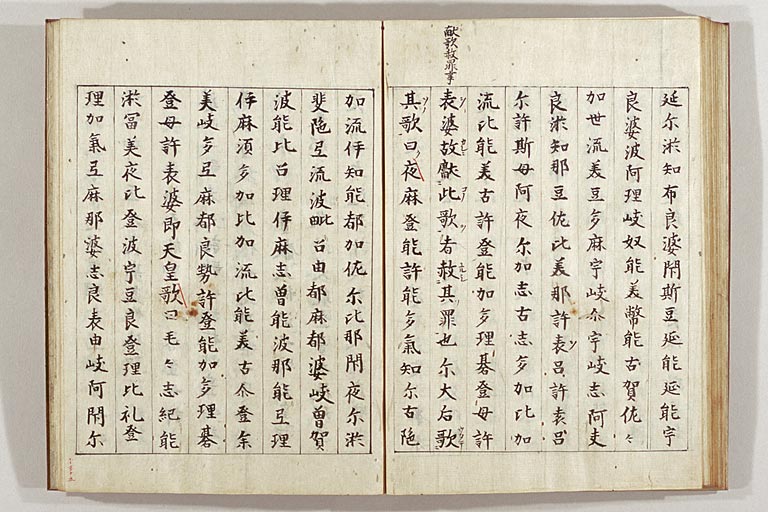 献歌赦罪事
延尓淤知布良婆閇斯豆延能延能宇
良婆波阿理岐奴能美幣能古賀佐〻
加世流美豆多麻宇岐尒宇岐志阿夫
良淤知那豆佐比美那許表呂許袁呂
尓許斯母阿夜尓加志古志多加比加
流比能美古許登能加多理碁登母許
表婆故獻此歌者赦其罪也尓大后歌
其歌曰夜麻登能許能多氣知尓古陁
加流伊知能都加佐尓比那閇夜尓淤
斐陁弖流波毗呂由都麻都婆岐曽賀
波能比呂理伊麻志曽能波那能弖理
伊麻須多加比加流比能美古尒登余
美岐多弖麻都良勢許登能加多理碁
登母許表婆即天皇歌曰毛〻志紀能
淤冨美夜比登波宇豆良登理比礼登
理加氣弖麻那婆志良表由岐阿閇尓